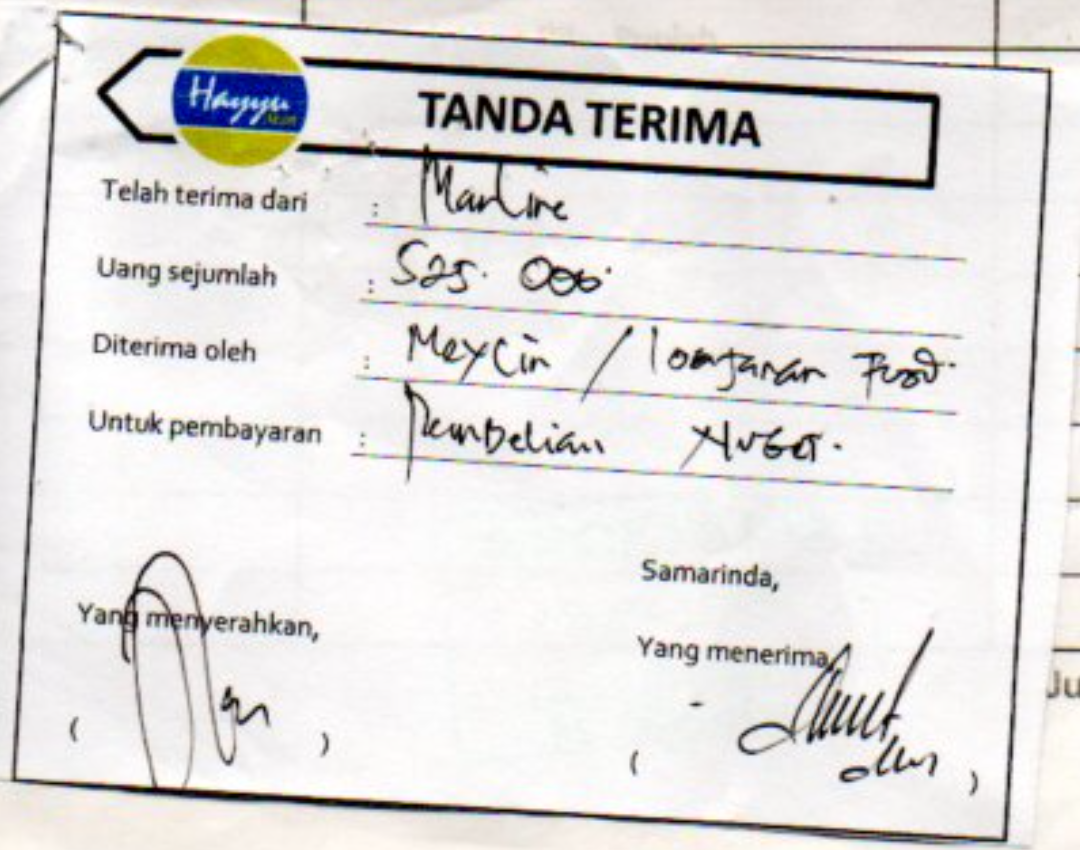 Hayyu
TANDA TERIMA
Telah terima dari : Marline
Uang sejumlah : 525.000
Diterima oleh : Meycin / Food.
Untuk pembayaran : Pembelian Nuget.
Samarinda,
Yang menyerahkan,
Yang menerima
( )
( )
Ju